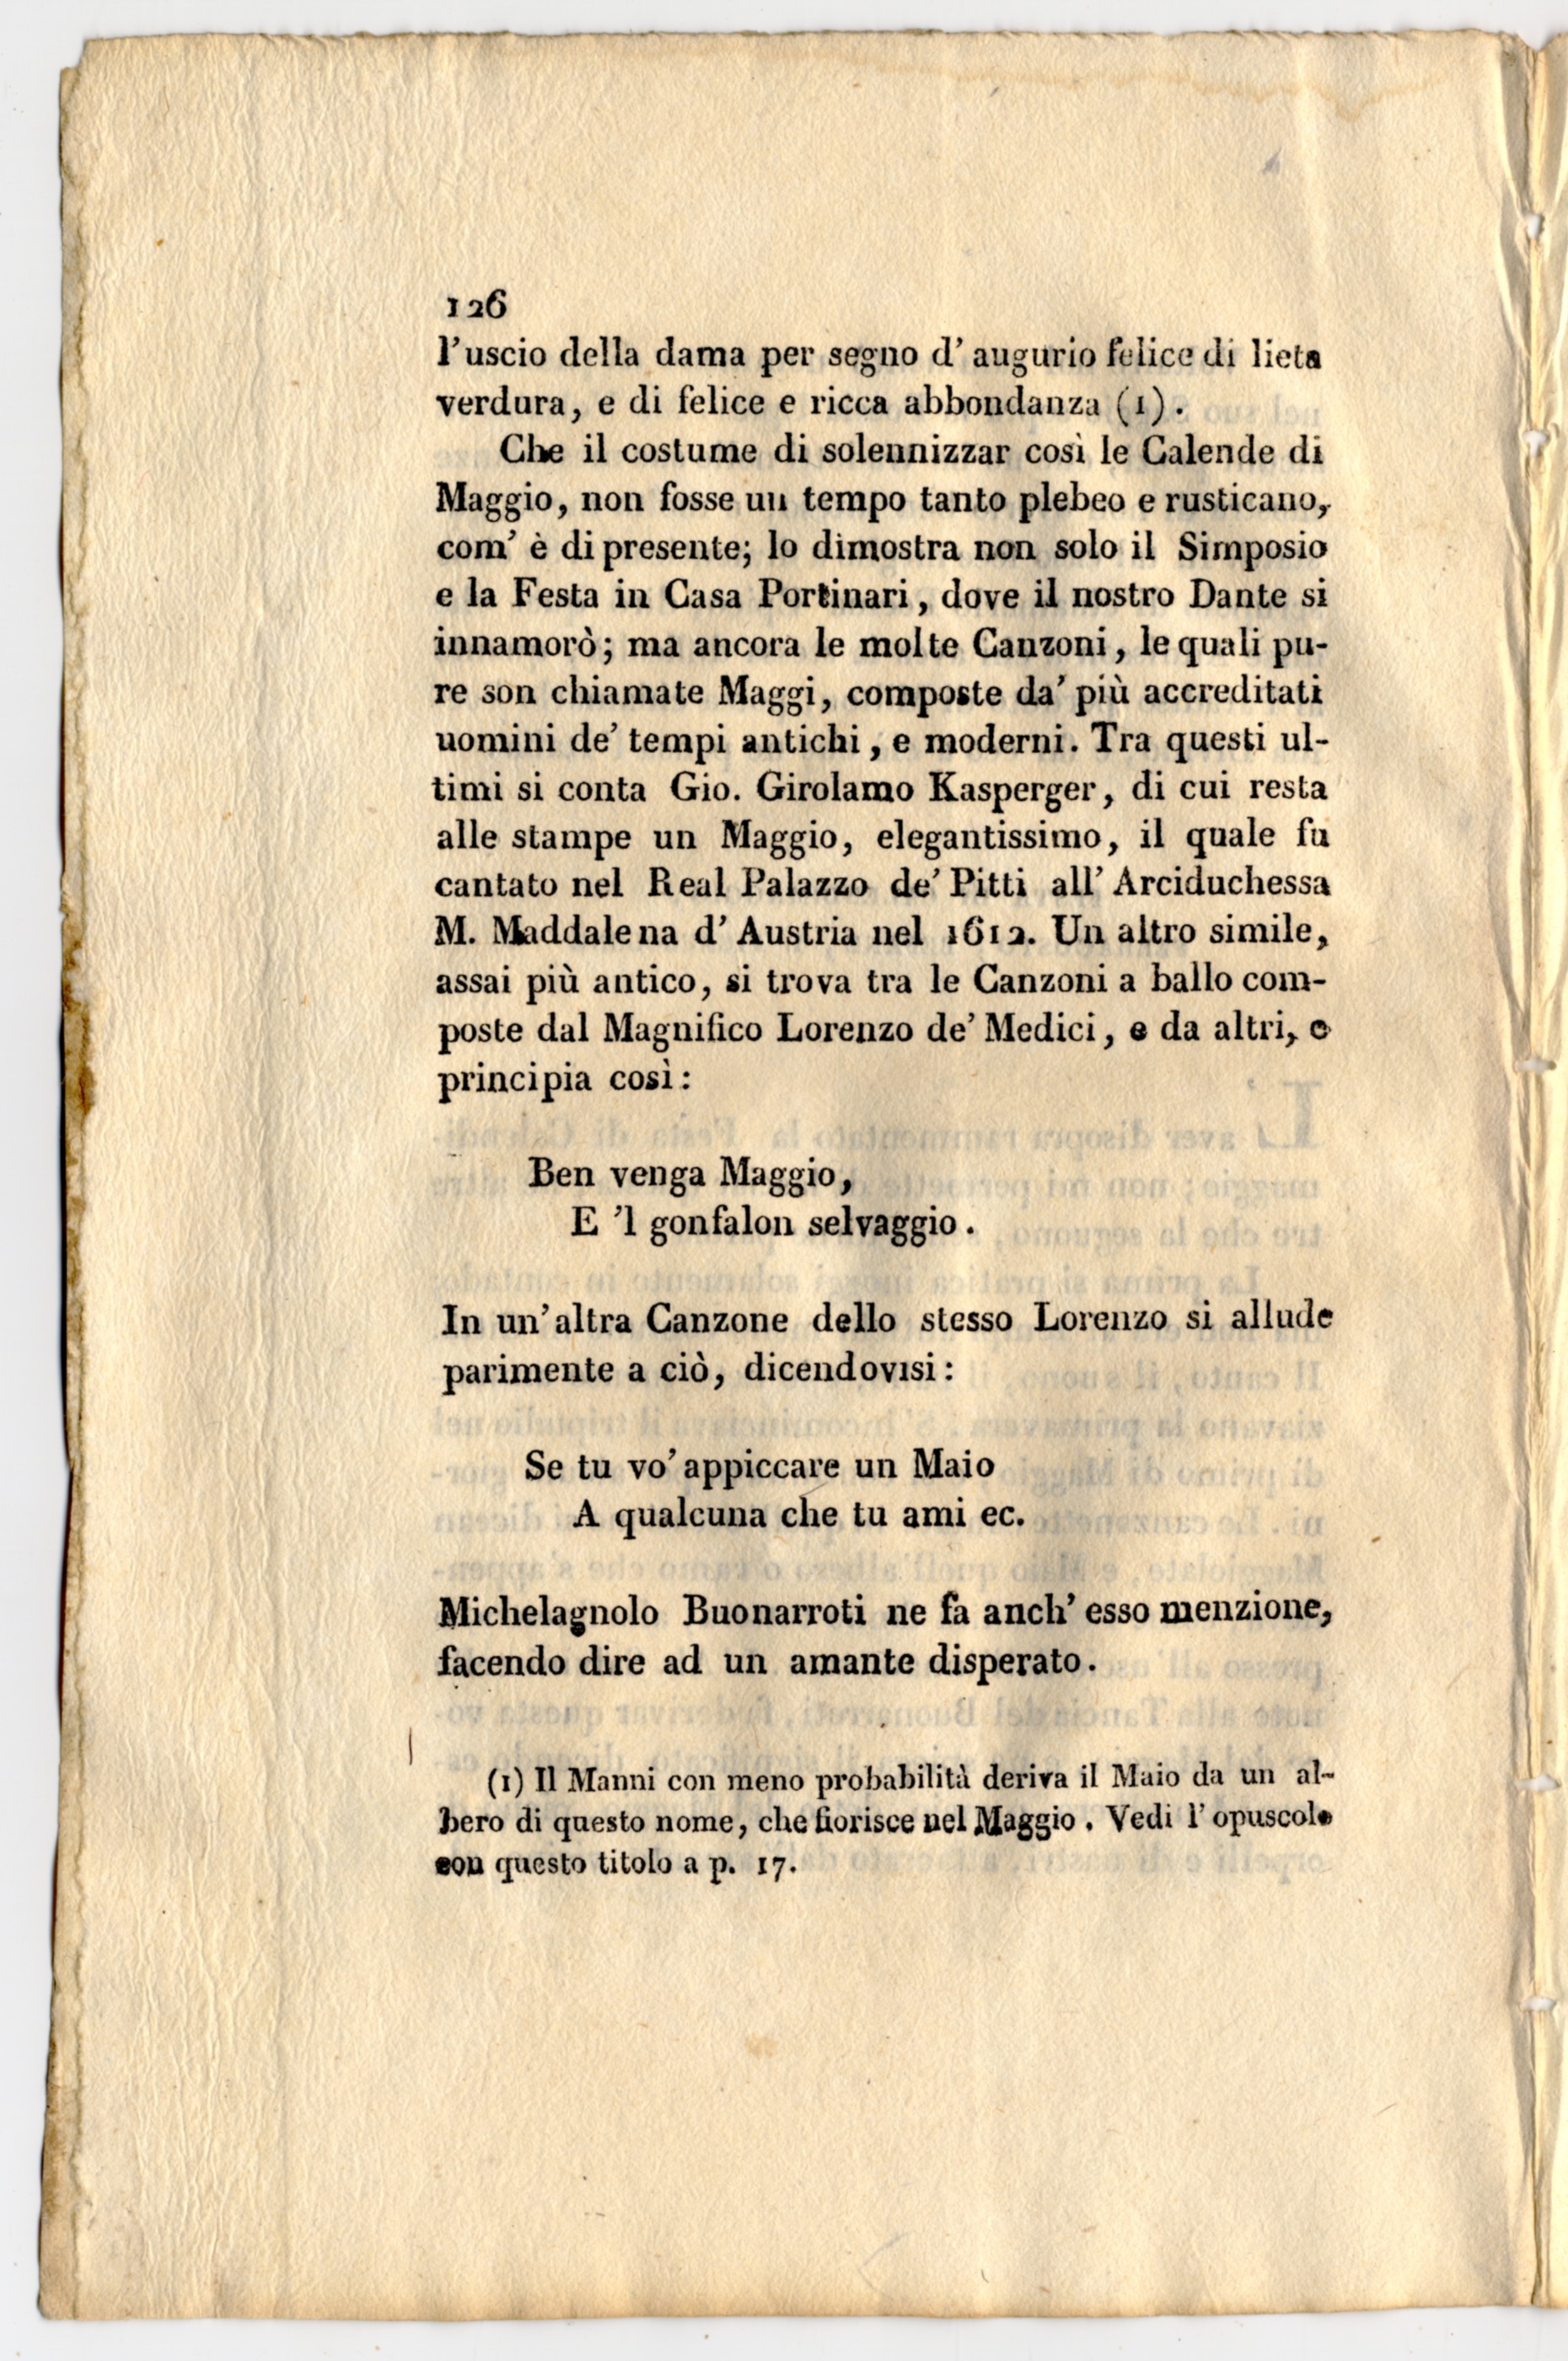 126
l'uscio della dama per segno d' augurio felice di lieta
verdura, e di felice e ricca abbondanza (1).
Che il costume di solennizzar così le Calende di
Maggio, non fosse un tempo tanto plebeo e rusticano,
com' è di presente; lo dimostra non solo il Simposio
e la Festa in Casa Portinari, dove il nostro Dante si
innamorò; ma ancora le molte Canzoni, le quali pu-
re son chiamate Maggi, composte da' più accreditati
uomini de' tempi antichi, e moderni. Tra questi ul-
timi si conta Gio. Girolamo Kasperger, di cui resta
alle stampe un Maggio, elegantissimo, il quale fu
cantato nel Real Palazzo de' Pitti all' Arciduchessa
M. Maddalena d' Austria nel 1612. Un altro simile,
assai più antico, si trova tra le Canzoni a ballo com-
poste dal Magnifico Lorenzo de' Medici, e da altri, e
principia così:
Ben venga Maggio,
E 'l gonfalon selvaggio.
In un'altra Canzone dello stesso Lorenzo si allude
parimente a ciò, dicendovisi:
Se tu vo' appiccare un Maio
A qualcuna che tu ami ec.
Michelagnolo Buonarroti ne fa anch' esso menzione,
facendo dire ad un amante disperato.
(1) Il Manni con meno probabilità deriva il Maio da un al-
bero di questo nome, che fiorisce nel Maggio. Vedi l' opuscolo
con questo titolo a p. 17.